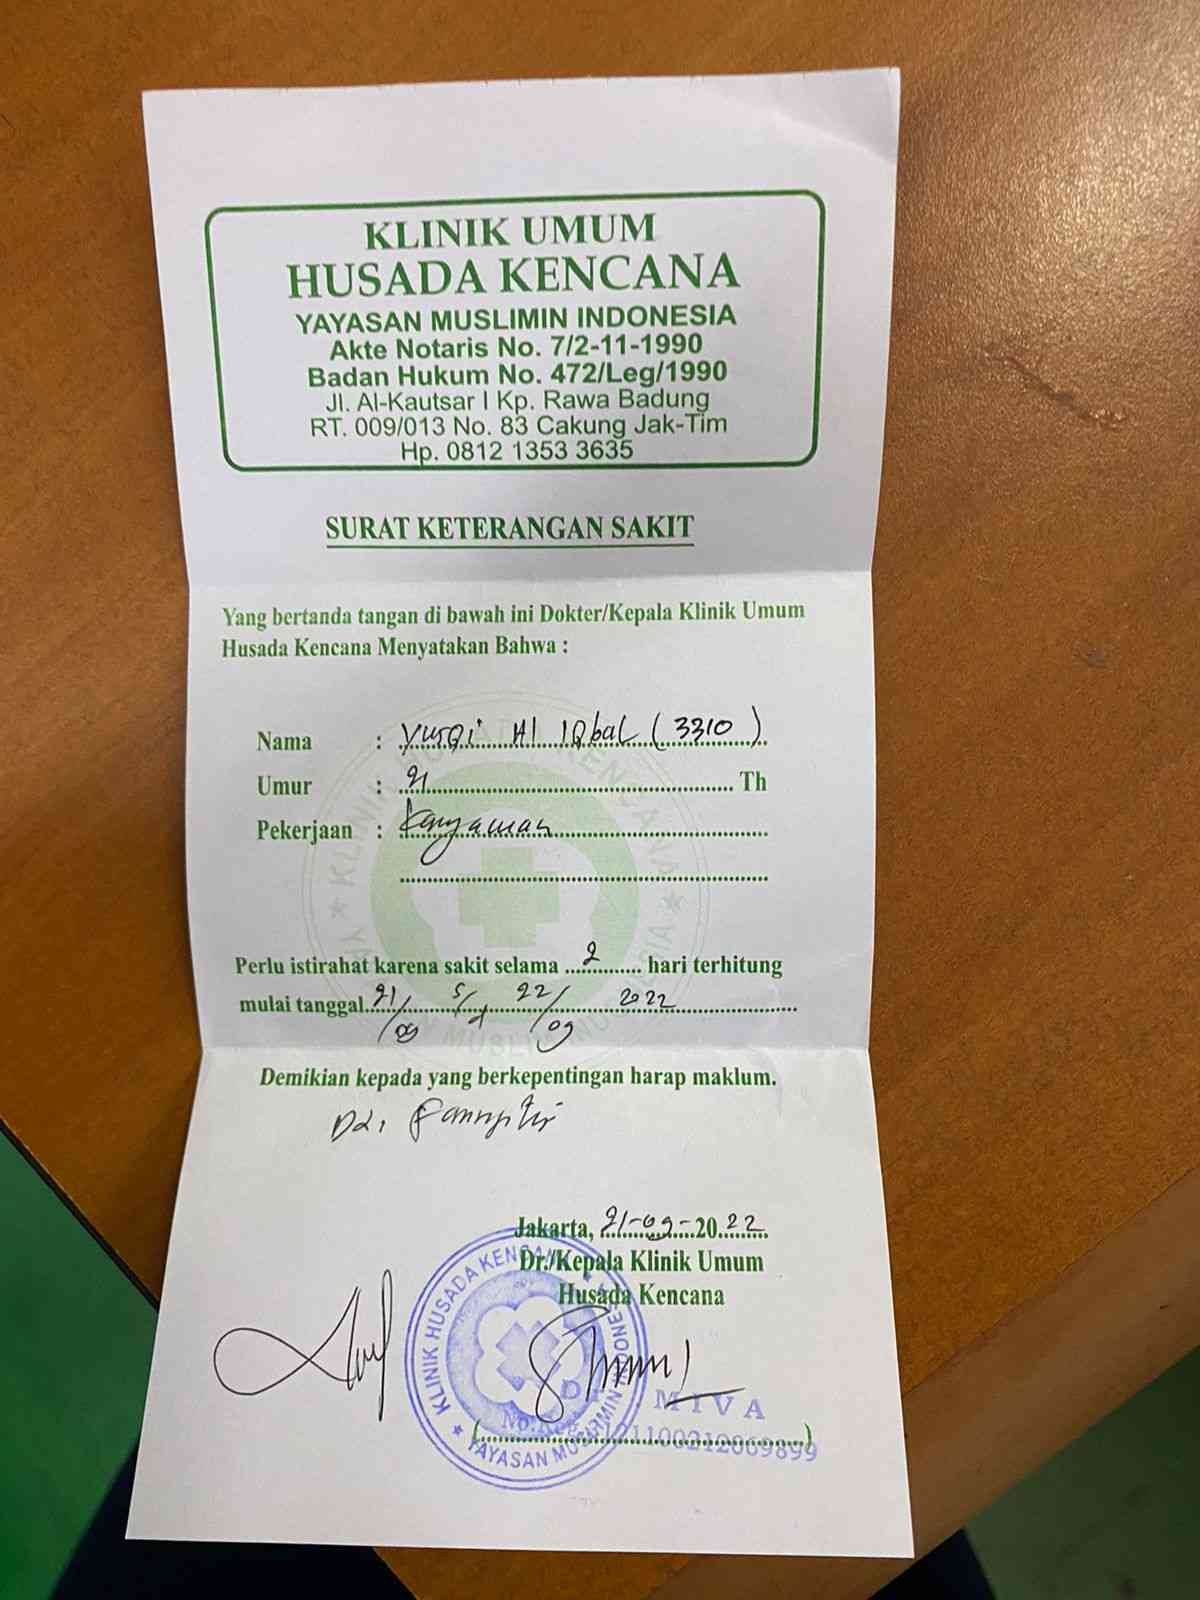 KLINIK UMUM
HUSADA KENCANA
YAYASAN MUSLIMIN INDONESIA
Akte Notaris No. 7/2-11-1990
Badan Hukum No. 472/Leg/1990
Jl. Al-Kautsar I Kp. Rawa Badung
RT. 009/013 No. 83 Cakung Jak-Tim
Hp. 0812 1353 3635
SURAT KETERANGAN SAKIT
Yang bertanda tangan di bawah ini Dokter/Kepala Klinik Umum
Husada Kencana Menyatakan Bahwa :
Nama : Yusqi Al Iqbal (3310)
Umur : 21 Th
Pekerjaan : Karyawan
Perlu istirahat karena sakit selama 2 hari terhitung
mulai tanggal 21/09 s/d 22/09 2022
Demikian kepada yang berkepentingan harap maklum.
Jakarta, 21-09-2022
Dr./Kepala Klinik Umum
Husada Kencana
KLINIK HUSADA KENCANA
YAYASAN MUSLIMIN INDONESIA
MIVA